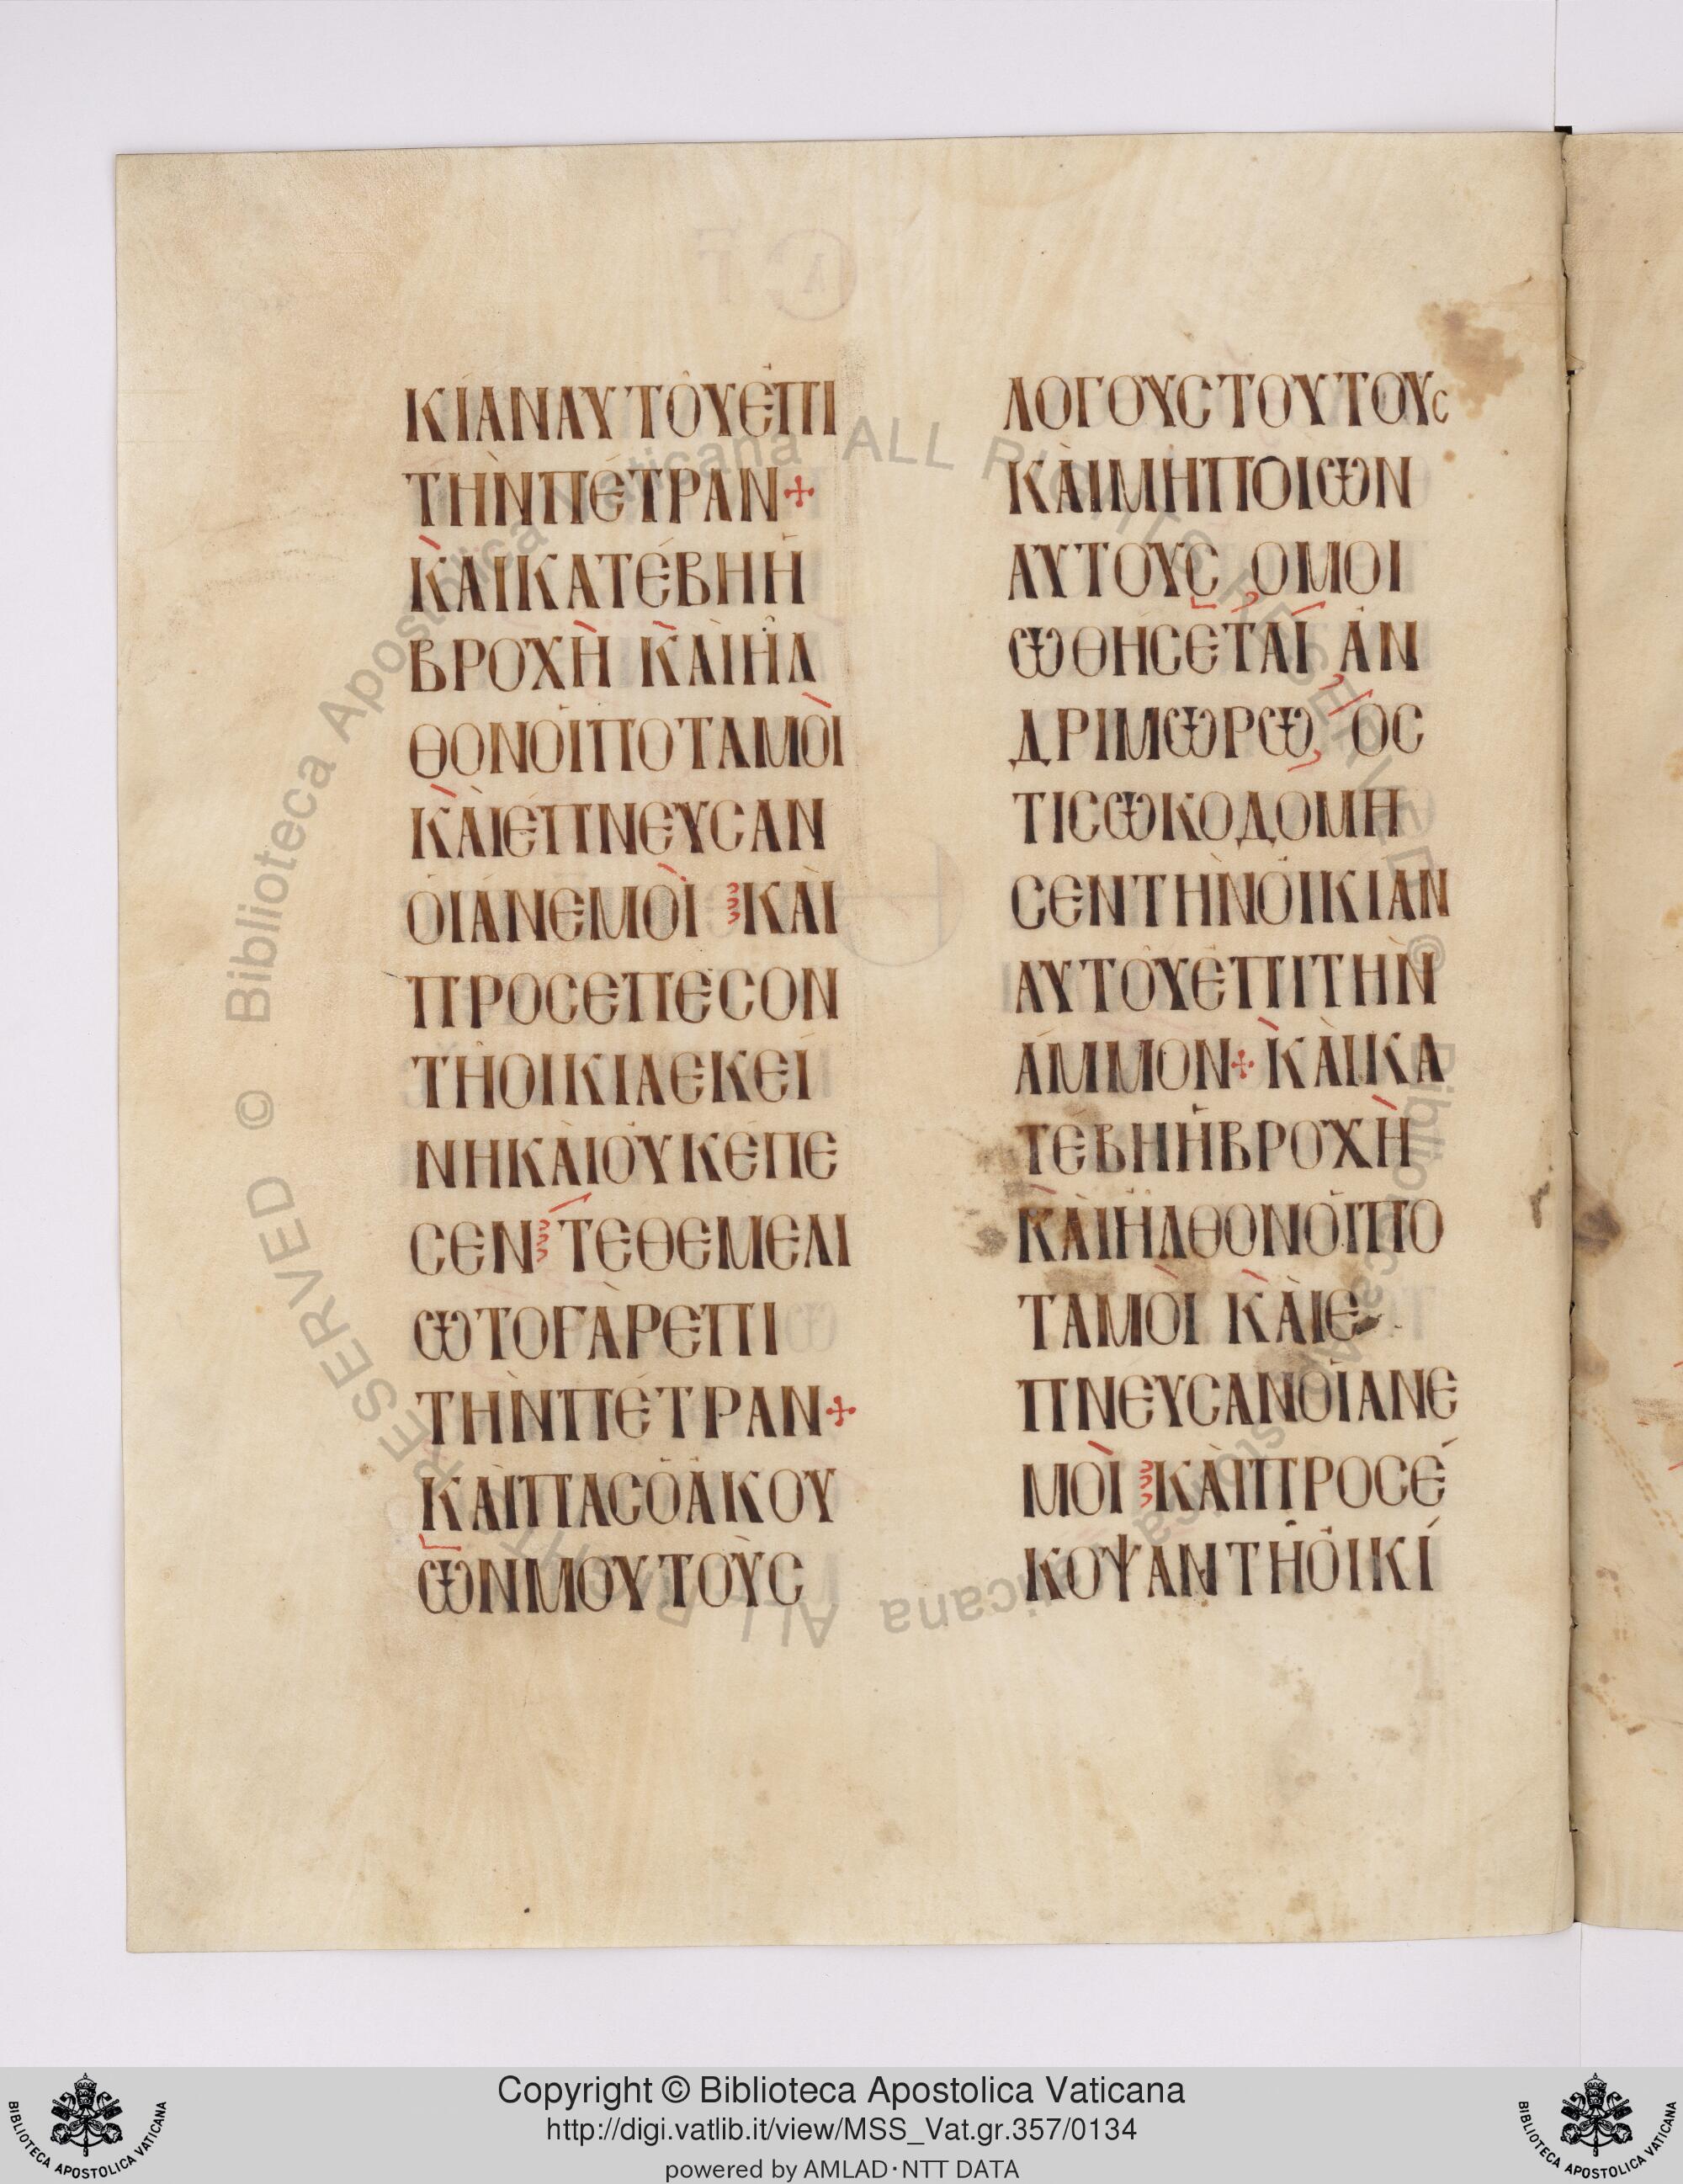 ΚΙΑΝΑΥΤΟΥΕΠΙ
ΤΗΝΠΕΤΡΑΝ+
ΚΑΙΚΑΤΕΒΗΗ
ΒΡΟΧΗ ΚΑΙΗΛ
ΘΟΝΟΙΠΟΤΑΜΟΙ
ΚΑΙΕΠΝΕΥϹΑΝ
ΟΙΑΝΕΜΟΙ ΚΑΙ
ΠΡΟϹΕΠΕϹΟΝ
ΤΗΟΙΚΙΑΕΚΕΙ
ΝΗΚΑΙΟΥΚΕΠΕ
ϹΕΝ ΤΕΘΕΜΕΛΙ
ΩΤΟΓΑΡΕΠΙ
ΤΗΝΠΕΤΡΑΝ+
ΚΑΙΠΑϹΟΑΚΟΥ
ΩΝΜΟΥΤΟΥϹ
ΛΟΓΟΥϹΤΟΥΤΟΥϹ
ΚΑΙΜΗΠΟΙΩΝ
ΑΥΤΟΥϹ ΟΜΟΙ
ΩΘΗϹΕΤΑΙ ΑΝ
ΔΡΙΜΩΡΩ ΟϹ
ΤΙϹΩΚΟΔΟΜΗ
ϹΕΝΤΗΝΟΙΚΙΑΝ
ΑΥΤΟΥΕΠΙΤΗΝ
ΑΜΜΟΝ+ΚΑΙΚΑ
ΤΕΒΗΗΒΡΟΧΗ
ΚΑΙΗΛΘΟΝΟΙΠΟ
ΤΑΜΟΙ ΚΑΙΕ
ΠΝΕΥϹΑΝΟΙΑΝΕ
ΜΟΙ ΚΑΙΠΡΟϹΕ
ΚΟΨΑΝΤΗΟΙΚΙ
© Biblioteca Apostolica Vaticana ALL RIGHTS RESERVED © Biblioteca Apostolica Vaticana ALL RIGHTS RESERVED
Copyright © Biblioteca Apostolica Vaticana
http://digi.vatlib.it/view/MSS_Vat.gr.357/0134
powered by AMLAD·NTT DATA
BIBLIOTECA APOSTOLICA VATICANA
BIBLIOTECA APOSTOLICA VATICANA